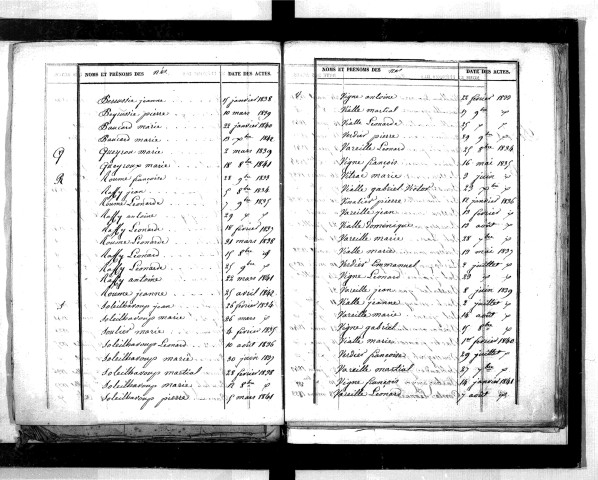 NOMS ET PRÉNOMS DES nés
DATE DES ACTES.
jeanne 17 janvier 1838
Beyrissie pierre 10 mars 1839
marie 22 janvier 1840
marie 1842
G Gueyroux marie 2 mars 1839
Gueyroux marie 18 8bre 1841
R Roume françoise 28 9bre 1833
Raffy jean 5 8bre 1834
Roume Léonarde 7 9bre 1835
Raffy antoine 29
Raffy Léonarde 18 février 1837
Roume Léonarde 31 mars 1838
Raffy Léonard 15 8bre
Raffy Léonarde 25 9bre
Raffy antoine 22 mars 1841
Roume jeanne 25 avril 1842
S Soleilhavoup jean 26 février 1834
Soleilhavoup marie 26 mars
Soulier marie 4 février 1835
Soleilhavoup Léonard 10 août 1836
Soleilhavoup marie 20 juin 1837
Soleilhavoup martial 28 février 1838
Soleilhavoup marie 12 8bre
Soleilhavoup pierre 5 mars 1841
NOMS ET PRÉNOMS DES nés
DATE DES ACTES.
V Vigne antoine 22 février 1833
Vialle martial 17 9bre
Vialle Léonarde 25
Verdier pierre 29 9bre
Vareille Léonard 25 8bre 1834
Vigne françois 16 mai 1835
marie 2 juin
Vialle gabriel 23
pierre 11 janvier 1836
Vareille jean 11 février
Vialle dominique 13 août
Vareille marie 28
Vialle marie 12 mai 1837
Verdier Emmanuel 4 juillet
Vigne Léonard 20
Vareille jean 8 juin 1839
Vialle jeanne 2 juillet
Vareille marie 14 août
Vigne gabriel 15 8bre
Vialle marie 1er février 1840
Verdier françoise 29 juillet
Vareille martial 27
Vigne françois 14 janvier 1841
Vareille Léonard 7 août